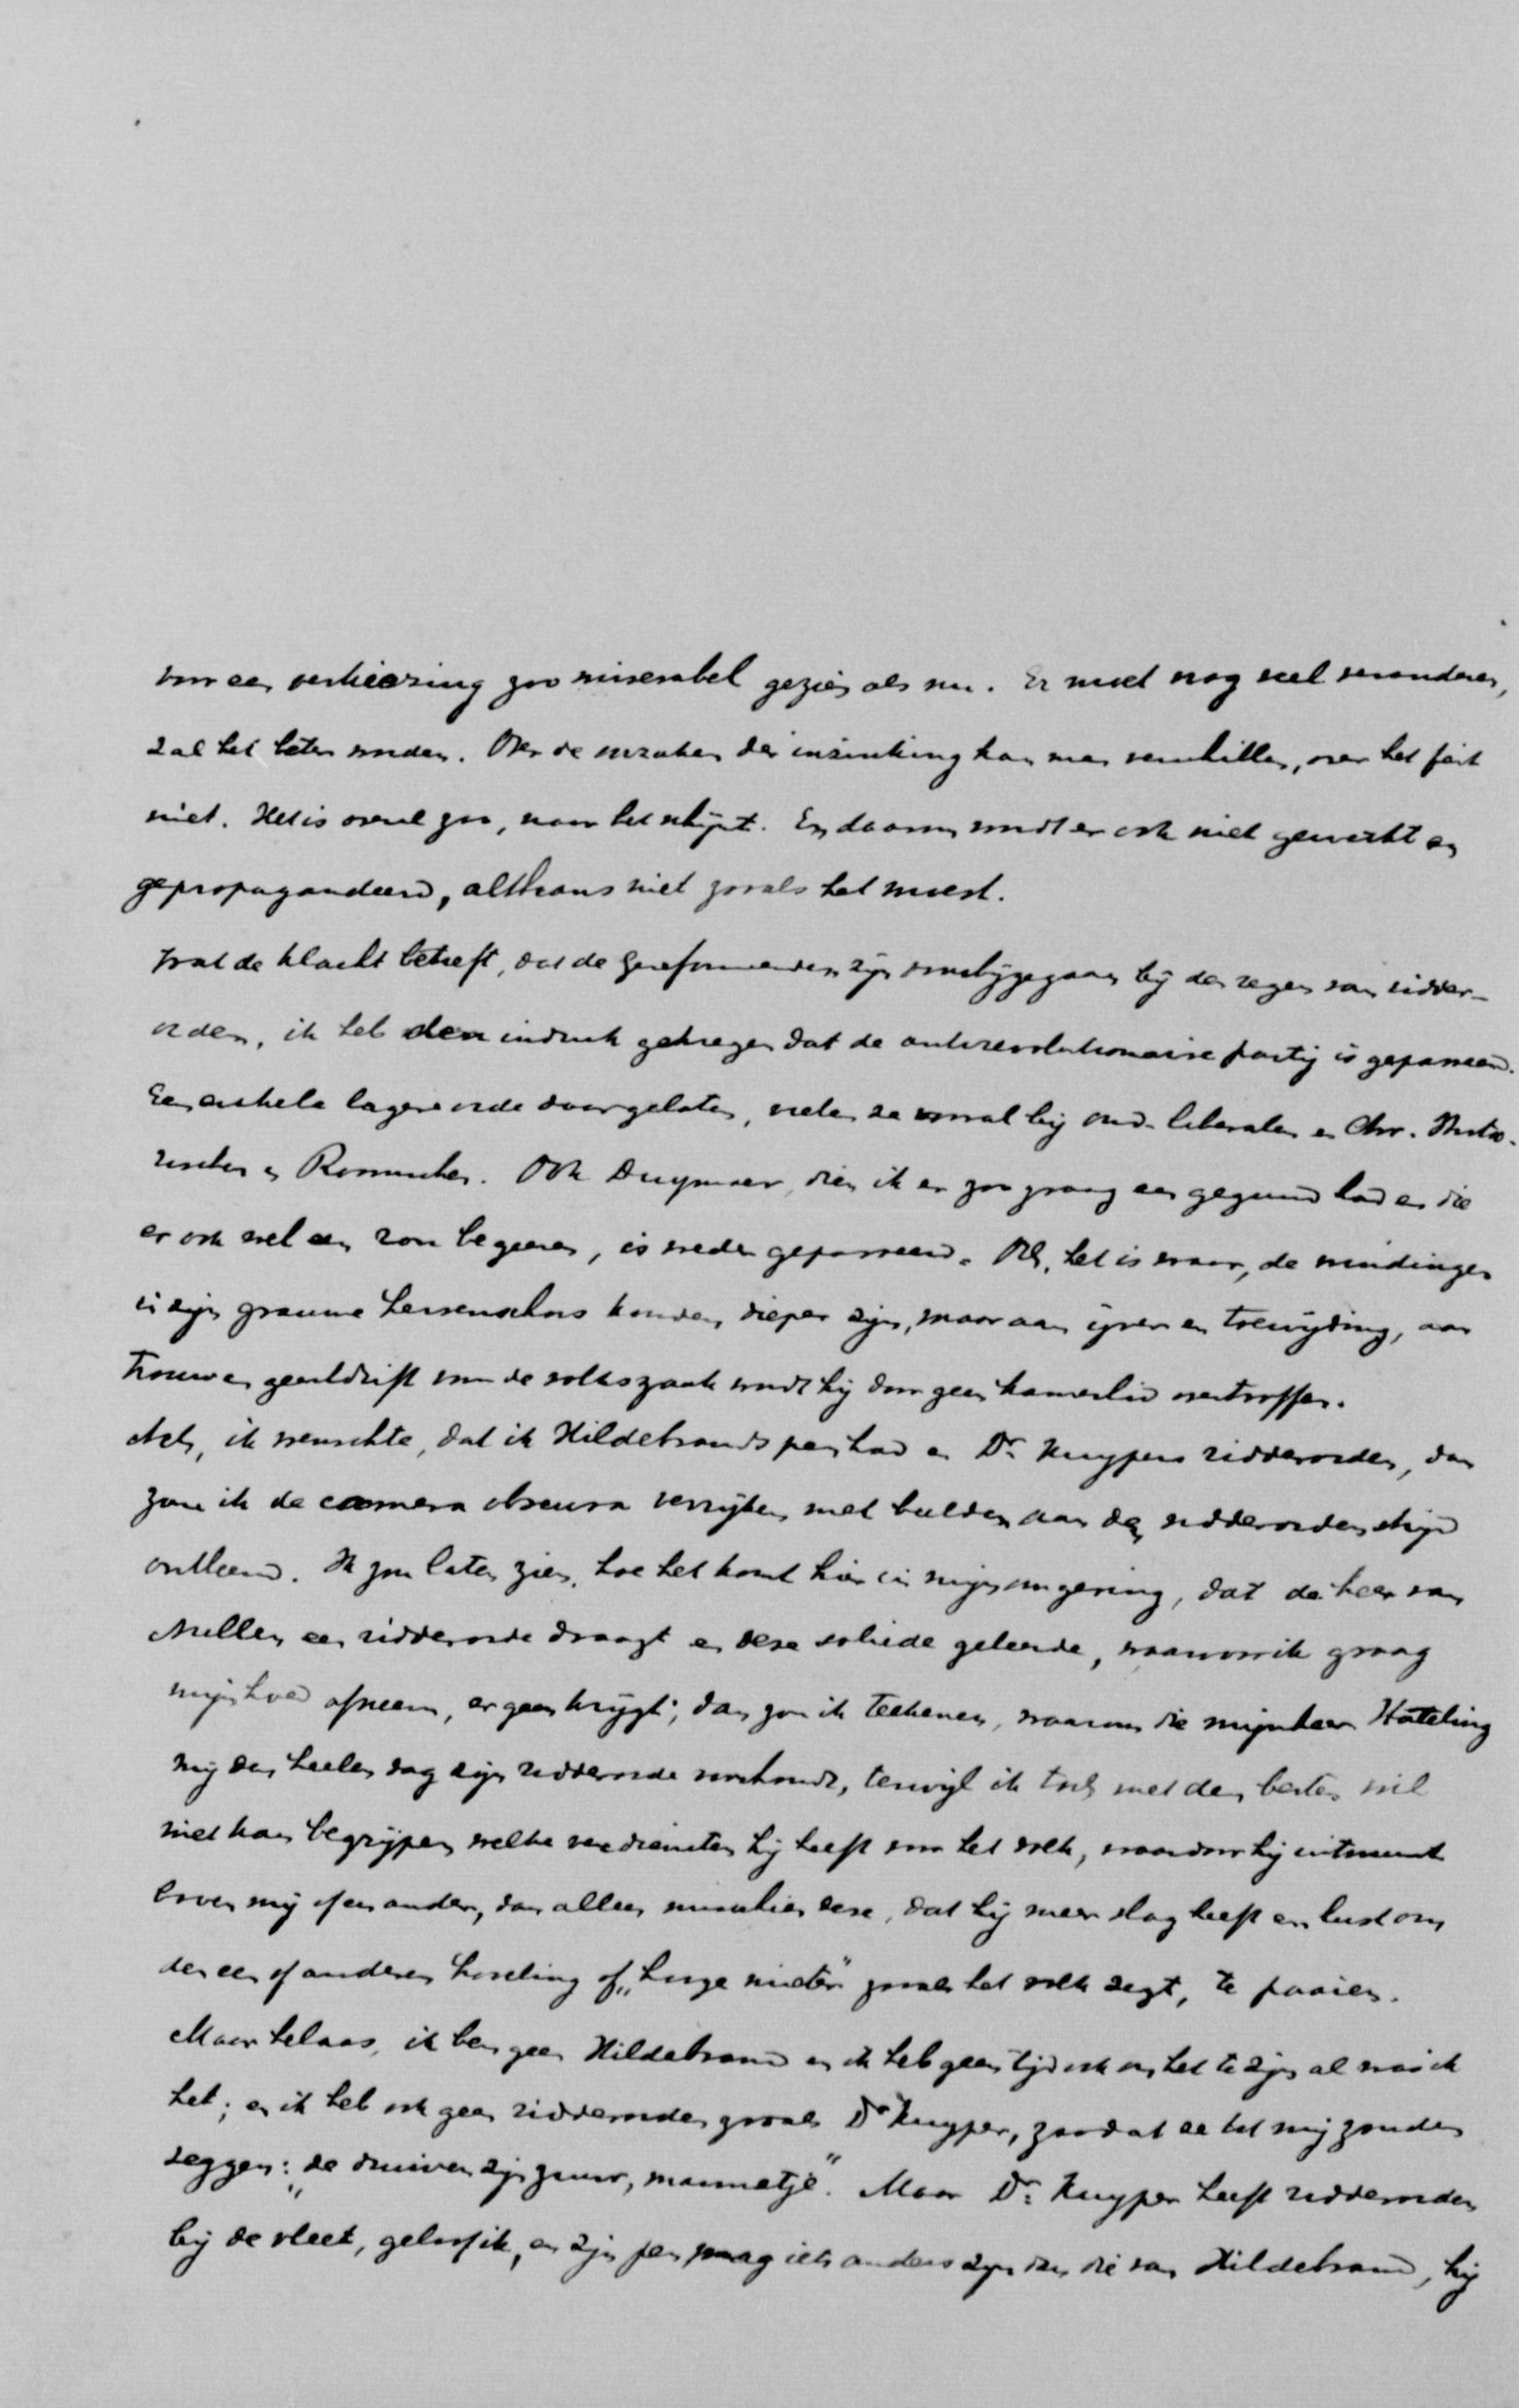 voor een verkiezing zoo miserabel gezien als nu. Er moet nog veel veranderen,
zal het beter worden. Over de oorzaken der inzinking kan men verschillen, over het feit
niet. Het is overal zoo, naar het schijnt. En daarom wordt er ook niet gewerkt en
gepropagandeerd, althans niet zooals het moest.
Wat de klacht betreft, dat de Gereformeerden zijn voorbijgegaan bij den regen van ridder-
orden, ik heb den indruk gekregen dat de antirevolutionaire partij is gepasseerd.
Een enkele lagere orde daargelaten, vielen ze vooral bij oud-liberalen en Chr. Histo-
rischen en Roomschen. Ook Duymaer, dien ik er zoo graag een gegund had en die
er ook wel een zou begeeren, is weder gepasseerd. Och, het is waar, de windingen
in zijn grauwe hersenschors konden dieper zijn, maar aan ijver en toewijding, aan
trouw en geestdrift voor de volkszaak wordt hij door geen kamerlid overtroffen.
Ach, ik wenschte, dat ik Hildebrands pen had en Dr. Kuypers ridderorden, dan
zou ik de camera obscura verrijken met beelden aan den ridderordenstrijd
ontleend. Ik zou laten zien, hoe het komt hier in mijn omgeving, dat de heer van
Mellen een ridderorde draagt en deze solide geleerde, waarvoor ik graag
mijn hoed afneem, er geen krijgt; dan zou ik teekenen, waarom die mijnheer Hateling
mij den heelen dag zijn ridderorde voorhoudt, terwijl ik toch met den besten wil
niet kan begrijpen welke verdiensten hij heeft voor het volk, waardoor hij uitmunt
boven mij of een ander, dan alleen misschien deze, dat hij meer slag heeft en lust om
den een of anderen hoveling of „hooge mieter" zooals het volk zegt, te paaien.
Maar helaas, ik ben geen Hildebrand en ik heb geen tijd ook om het te zijn al was ik
het; en ik heb ook geen ridderorden zooals Dr Kuyper, zoodat ze tot mij zouden
zeggen: „de druiven zijn zuur, mannetje". Maar Dr. Kuyper heeft ridderorden
bij de vleet, geloof ik, en zijn pen mag iets anders zijn dan die van Hildebrand, hij